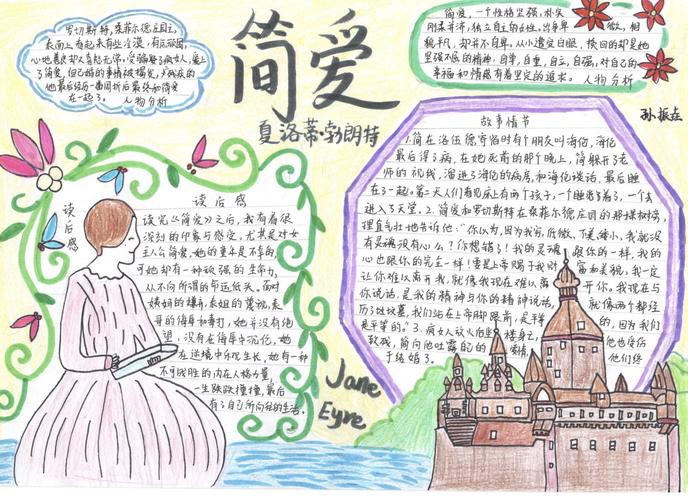 罗切斯特,桑菲尔德庄园主,
表面上看起来有些冷漫,有点顽固,
心地善良却又喜怒无常,受骗娶了疯女人,爱上
了简爱,但已婚的事情被揭发,
他最后经历一番周折后最终和简爱
在一起了。 人物分析
简爱
夏洛蒂·勃朗特
简爱,一个性格坚强,朴实
刚柔并济,独立自主的女性,出身卑微,相
貌平凡,却并不自卑,从小遭受白眼,换回的却是她
坚强不屈的精神,自尊,自重,自立,自强,对自己的
幸福和情感有着坚定的追求。 人物分析
孙振垚
读后感
读后感
读完《简爱》之后,我有着很
深刻的印象与感受,尤其是对女
主人公简爱,她的童年是不幸的,
可她却有一种顽强的生命力,
从不向所谓的命运低头,面对
舅妈的嫌弃,表姐的蔑视,表
哥的侮辱和毒打,她并没有绝
望,没有在侮辱中沉沦,她
在逆境中的成长,她有一种
不可战胜的内在人格力量,
一生跌跌撞撞,最后
有了自己所向往的生活。
Jane
Eyre
故事情节
小简在洛伍德寄宿时有个朋友叫海伦,海伦
最后得了病,在她死前的那个晚上,简躲开了老
师的视线,溜进了海伦的病房,和海伦谈话,最后睡
在了一起。第二天人们看见床上有两个孩子,一个睡着了,一个去
进入了天堂。2.简爱和罗切斯特在桑菲尔德庄园的那棵树旁,
理直气壮地告诉他:“你以为,因为我穷,低微,不美,矮小,我就没
有灵魂没有心么?你想错了!我的灵魂跟你的一样,我的
心也跟你的完全一样!要是上帝赐予我财富和美貌,我一定
让你难以离开我,就像我现在难以离开你,我现在与
你说话,是我的精神与你的精神说话,就像两个都经
历了坟墓,我们站在上帝脚跟前,是平等的,因为我们
是平等的。”3.疯女人放火